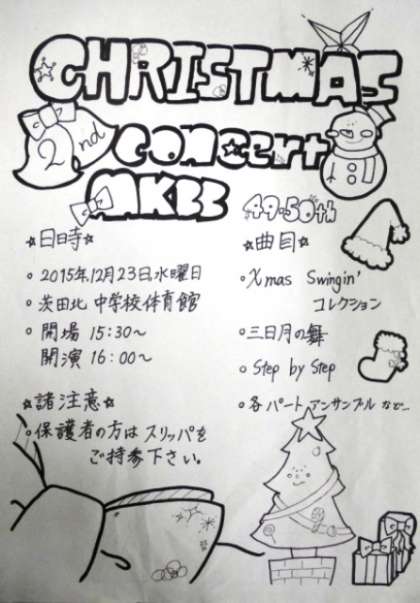 CHRISTMAS
2nd concert
MKBC 49・50th
☆日時☆
。2015年12月23日水曜日
。茨田北 中学校体育館
。開場 15:30〜
開演 16:00〜
☆諸注意☆
。保護者の方は スリッパを
ご持参下さい。
☆曲目☆
。Xmas Swingin'
コレクション
。三日月の舞
。Step by Step
。各パートアンサンブル など…